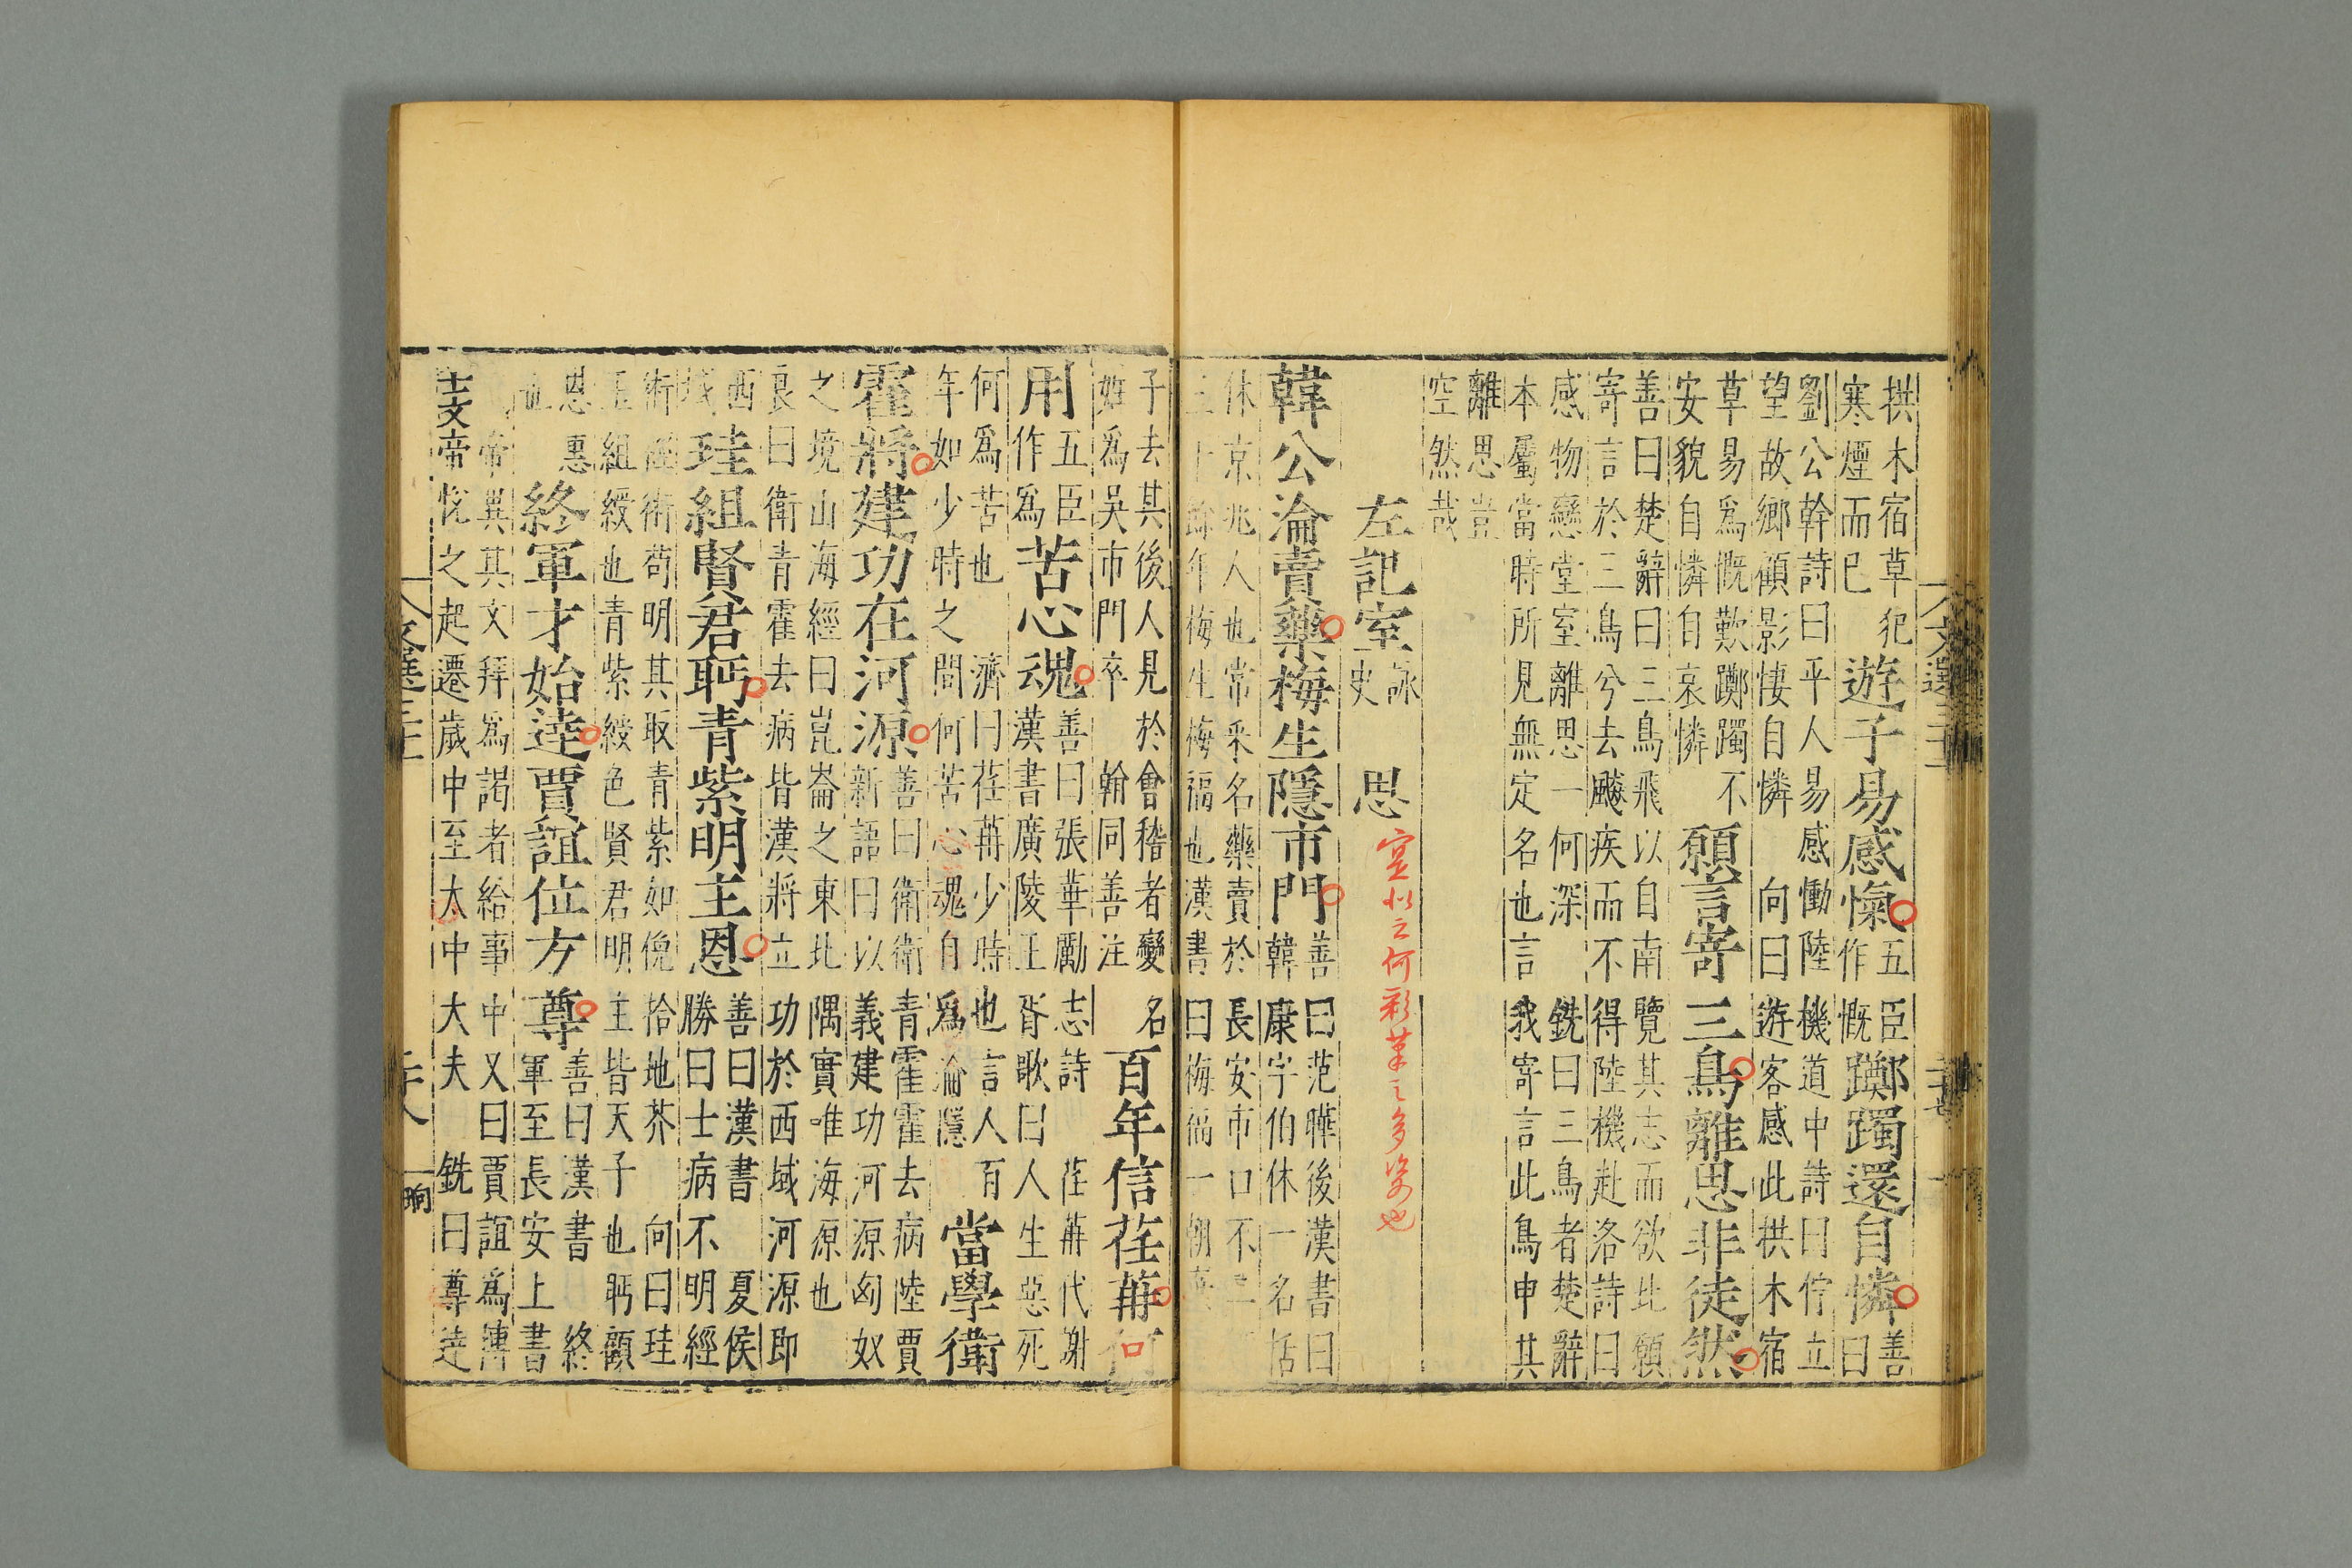 拱木宿草犯
寒煙而已
遊子易感愾
五臣
作慨
躑躅還自憐
善
曰
劉公幹詩曰平人易感慟陸機道中詩曰佇立
望故鄉顧影悽自憐 向曰遊客感此拱木宿
草易爲慨歎躑躅不
安貌自憐自哀憐
願言寄三鳥離思非徒然
善曰楚辭曰三鳥飛以自南覽其志而欲北願
寄言於三鳥兮去飈疾而不得陸機赴洛詩曰
感物戀堂室離思一何深 銑曰三鳥者楚辭
本屬當時所見無定名也言我寄言此鳥申其
離思豈
空然哉
左記室
詠
史
思
韓公淪賣藥梅生隱市門
善曰范曄後漢書曰
韓康字伯休一名恬
休京兆人也常采名藥賣於長安市口不二
三十餘年梅生梅福也漢書曰梅福一朝
子去其後人見於會稽者變名
姓爲吳市門卒 翰同善注
百年信荏苒何
用
五臣
作爲
苦心魂
善曰張華勵志詩 荏苒代謝
漢書廣陵王胥歌曰人生惡死
何爲苦也 濟曰荏苒少時也言人百
年如少時之間何苦心魂自爲淪隱
當學衛
霍將建功在河源
善曰衛衛青霍霍去病陸賈
新語曰以義建功河源匈奴
之境山海經曰崑崙之東北隅實唯海源也
良曰衛青霍去病皆漢將立功於西域河源即
西
域
珪組賢君眄青紫明主恩
善曰漢書 夏侯
勝曰士病不明經
術經術苟明其取青紫如俛拾地芥 向曰珪
玉組綬也青紫綬色賢君明主皆天子也眄顧
恩惠
也
終軍才始達賈誼位方尊
善曰漢書 終
軍至長安上書
帝異其文拜爲謁者給事中又曰賈誼爲博
士文帝悅之起遷歲中至太中大夫 銑曰尊達